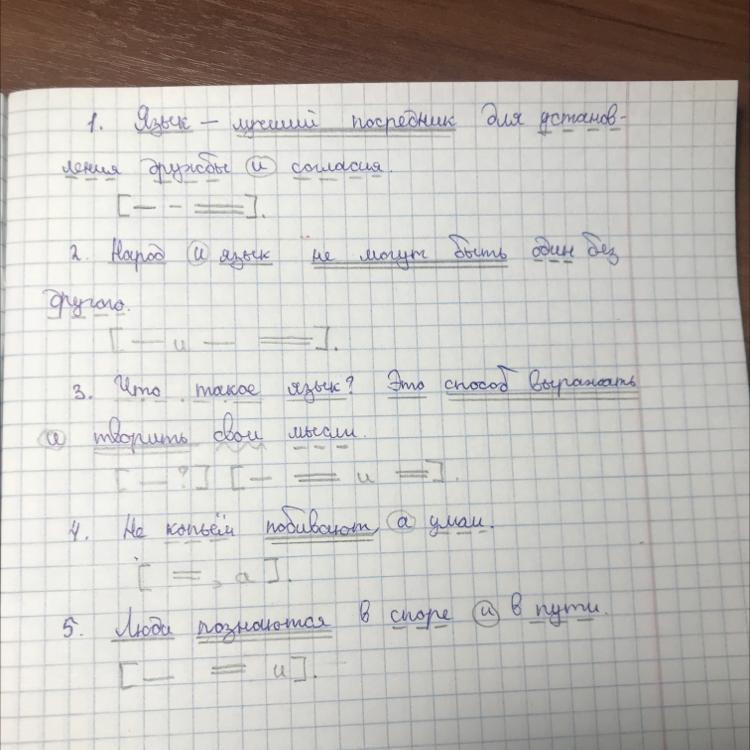 1. Язык – лучший посредник для установ-
ления дружбы и согласия.
[— - ═].
2. Народ и язык не могут быть один без
другого.
[— и — ═].
3. Что такое язык? Это способ выражать
и творить свои мысли.
[—?] [— ═ и ═].
4. Не копьём побивают, а умом.
[ ═, а ].
5. Люди познаются в споре и в пути.
[— ═ и].